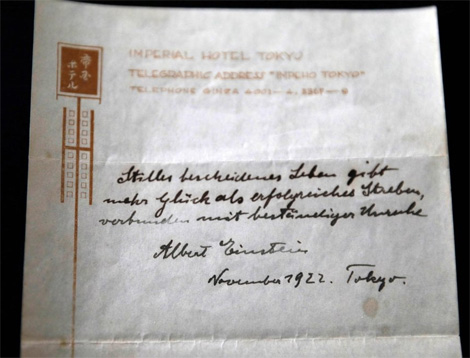 IMPERIAL HOTEL TOKYO
TELEGRAPHIC ADDRESS "IMPEHO TOKYO"
TELEPHONE GINZA
帝国
ホテル
Stilles bescheidenes Leben gibt
mehr Glück als erfolgreiches Streben,
verbunden mit beständiger Unruhe
Albert Einstein
November 1922. Tokyo.